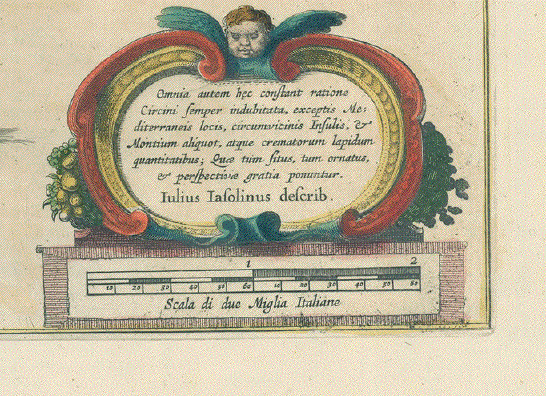 Omnia autem hęc constant ratione
Circini semper indubitata, exceptis Me:
diterraneis locis, circumvicinis Insulis, &
Montium aliquot, atque crematorum lapidum
quantitatibus; Quæ tum situs, tum ornatus,
& perspectivæ gratia ponuntur.
Iulius Iasolinus describ.
1 2
10 20 30 40 50 60 10 20 30 40 50 60
Scala di due Miglia Italiane